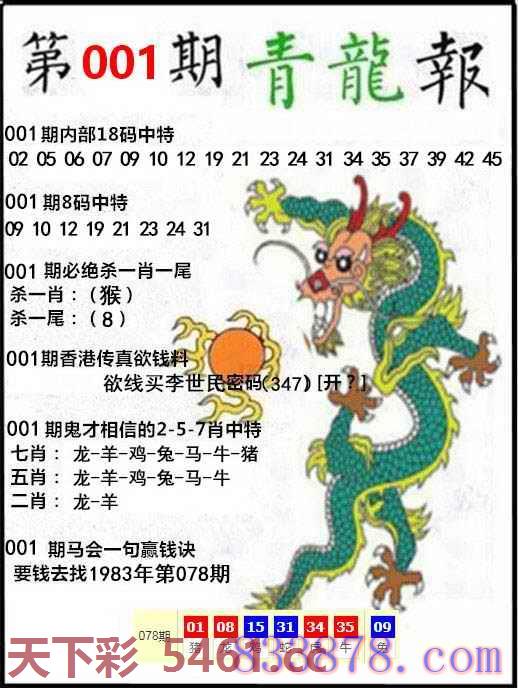 第001期青龍報
001期内部18码中特
02 05 06 07 09 10 12 19 21 23 24 31 34 35 37 39 42 45
001期8码中特
09 10 12 19 21 23 24 31
001 期必绝杀一肖一尾
杀一肖：（猴）
杀一尾：（8）
001期香港传真欲钱料
欲线买李世民密码(347) [开？]
001期鬼才相信的2-5-7肖中特
七肖： 龙-羊-鸡-兔-马-牛-猪
五肖： 龙-羊-鸡-兔-马-牛
二肖： 龙-羊
001 期马会一句赢钱诀
要钱去找1983年第078期
078期 01 08 15 31 34 35 09
猪 龙 鸡 蛇 虎 牛 兔
天下彩
838878.com